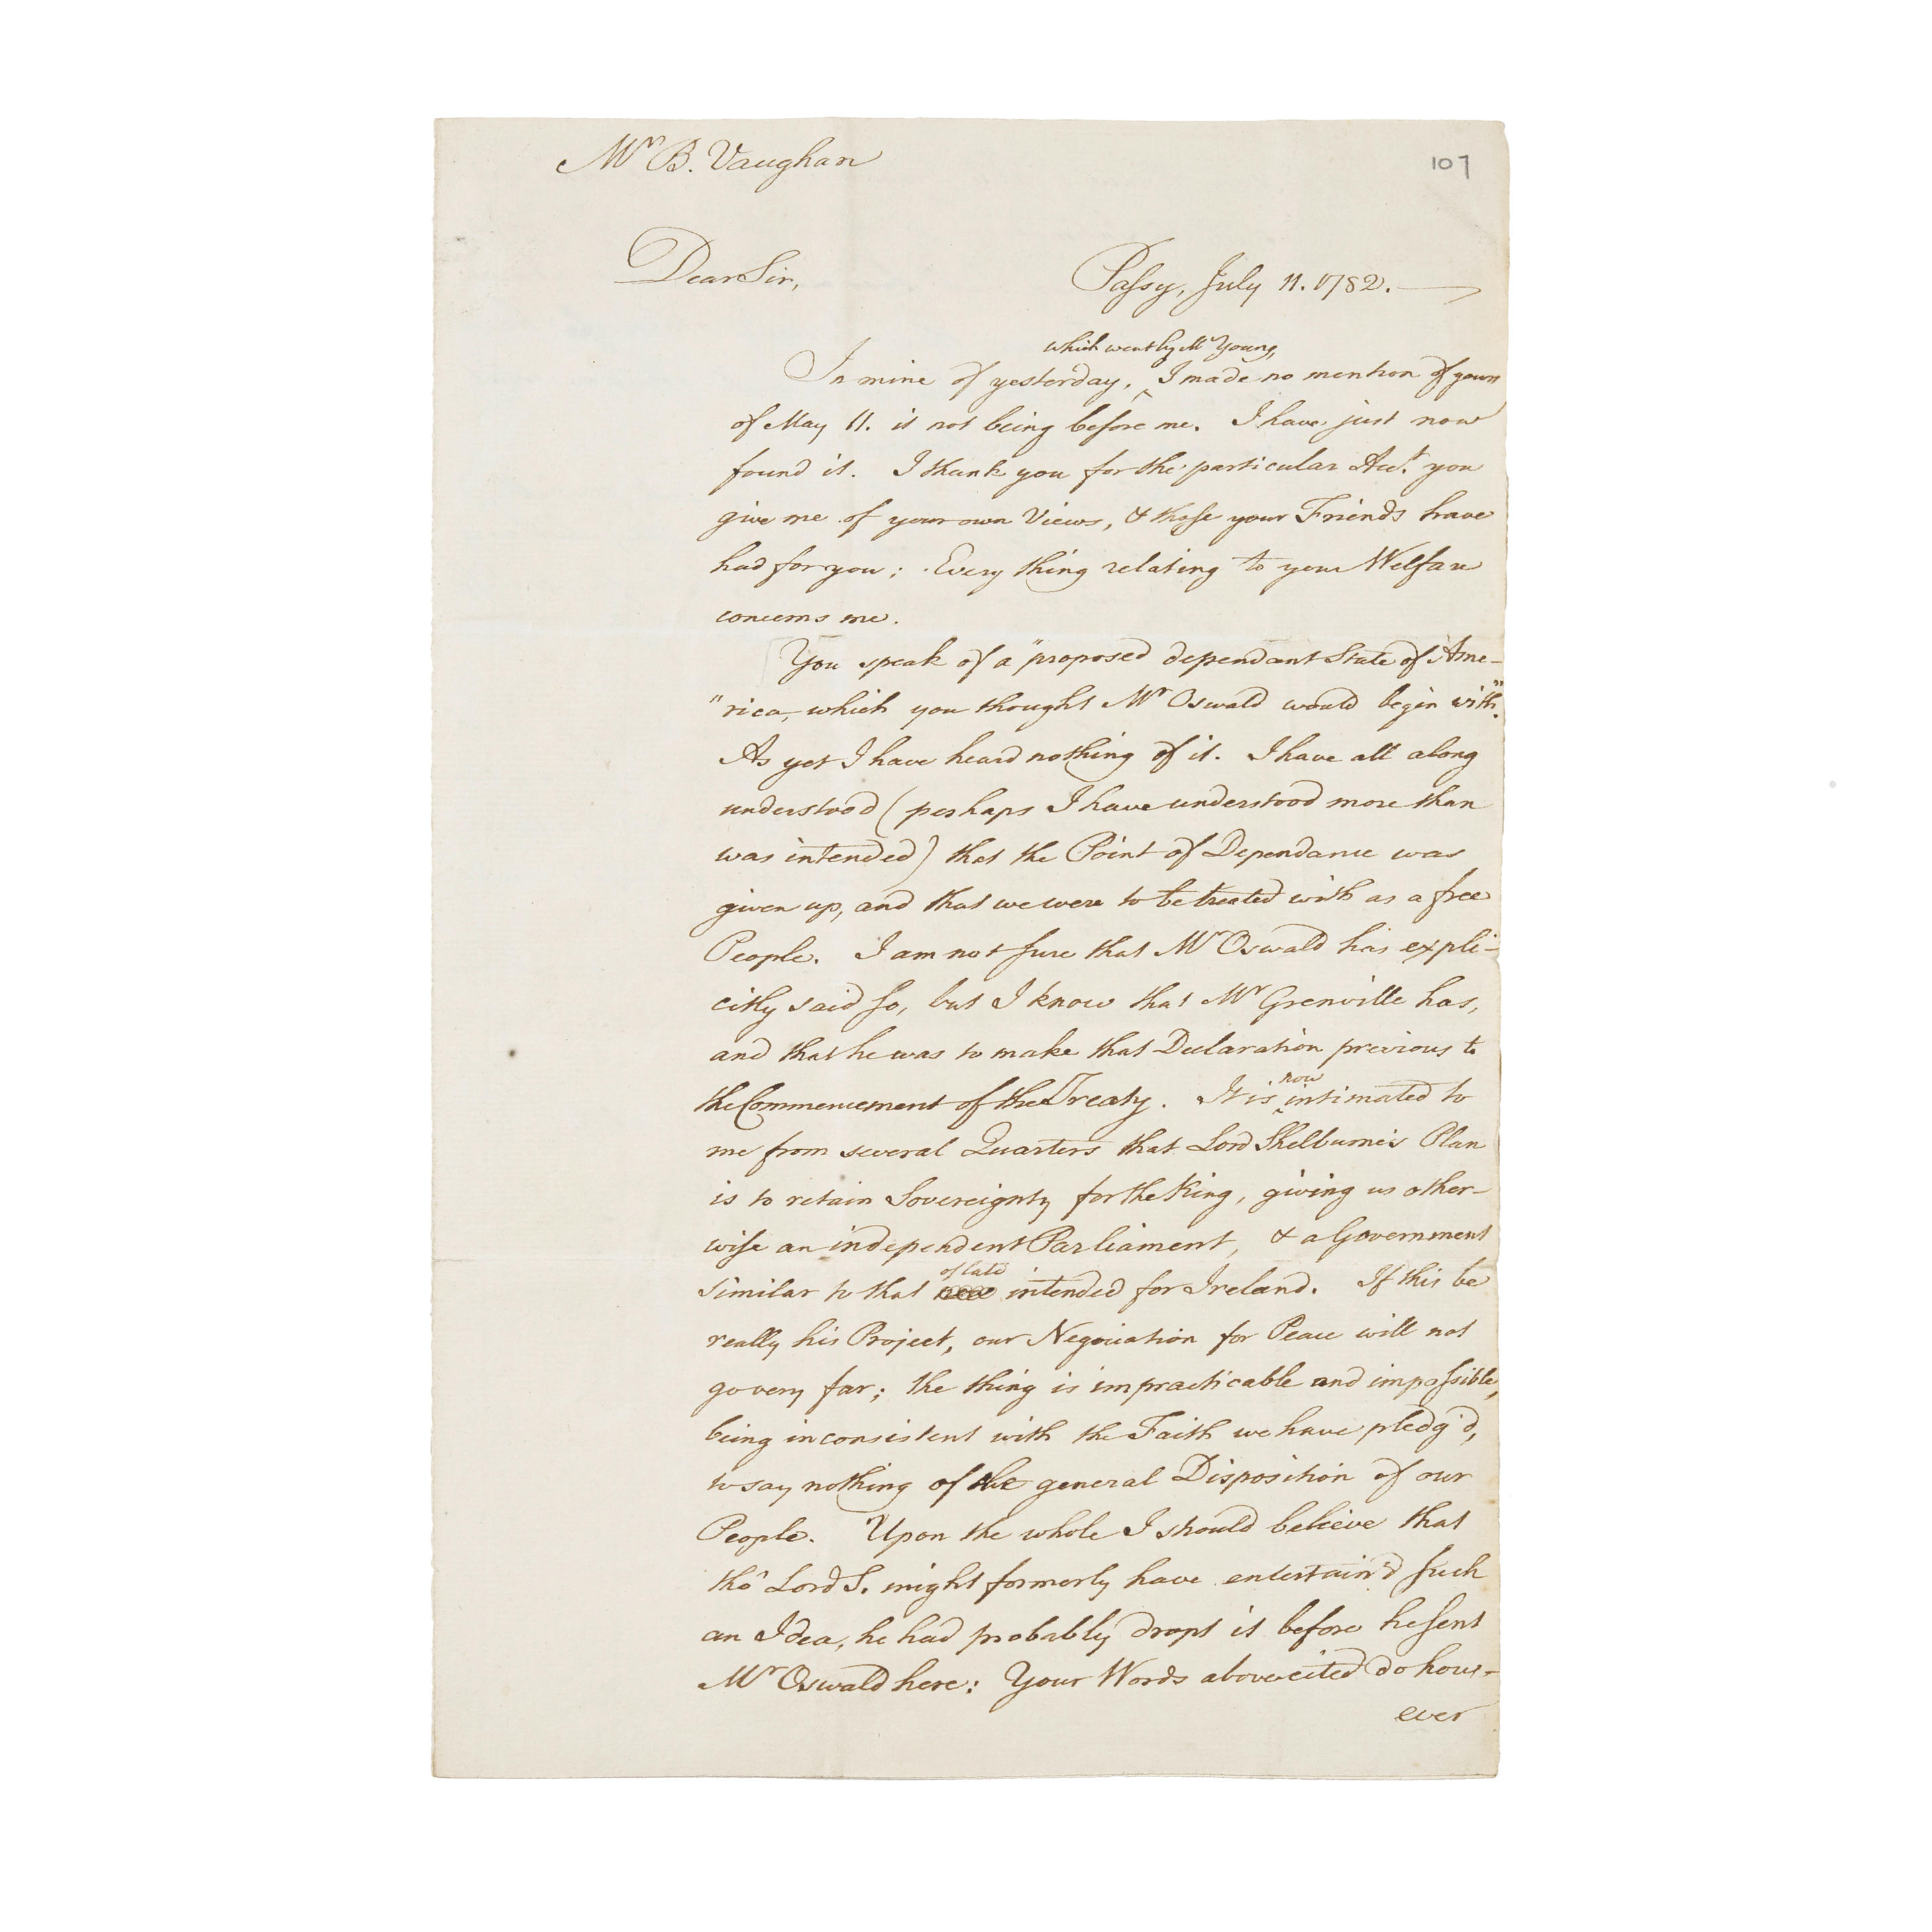 Mr B. Vaughan
107
Dear Sir,
Passy, July 11. 1782.
which went by Mr Young,
In mine of yesterday, ‸ I made no mention of yours
of May 11. it not being before me. I have just now
found it. I thank you for the particular Acct. you
give me of your own Views, & those your Friends have
had for you; Every thing relating to your Welfare
concerns me.
You speak of a "proposed dependant State of Ame-
"rica, which you thought Mr Oswald would begin with."
As yet I have heard nothing of it. I have all along
understood (perhaps I have understood more than
was intended) that the Point of Dependance was
given up, and that we were to be treated with as a free
People. I am not sure that Mr Oswald has expli-
citly said so, but I know that Mr Grenville has,
and that he was to make that Declaration previous to
now
the Commencement of the Treaty. It is ‸ intimated to
me from several Quarters that Lord Shelburne's Plan
is to retain Sovereignty for the King, giving us other-
wise an independent Parliament, & a Government
of late
similar to that intended for Ireland. If this be
really his Project, our Negociation for Peace will not
go very far; the thing is impracticable and impossible,
being inconsistent with the Faith we have pledg'd,
to say nothing of the general Disposition of our
People. Upon the whole I should believe that
tho' Lord S. might formerly have entertain'd such
an Idea, he had probably dropt it before he sent
Mr Oswald here: Your Words above cited do how-
ever